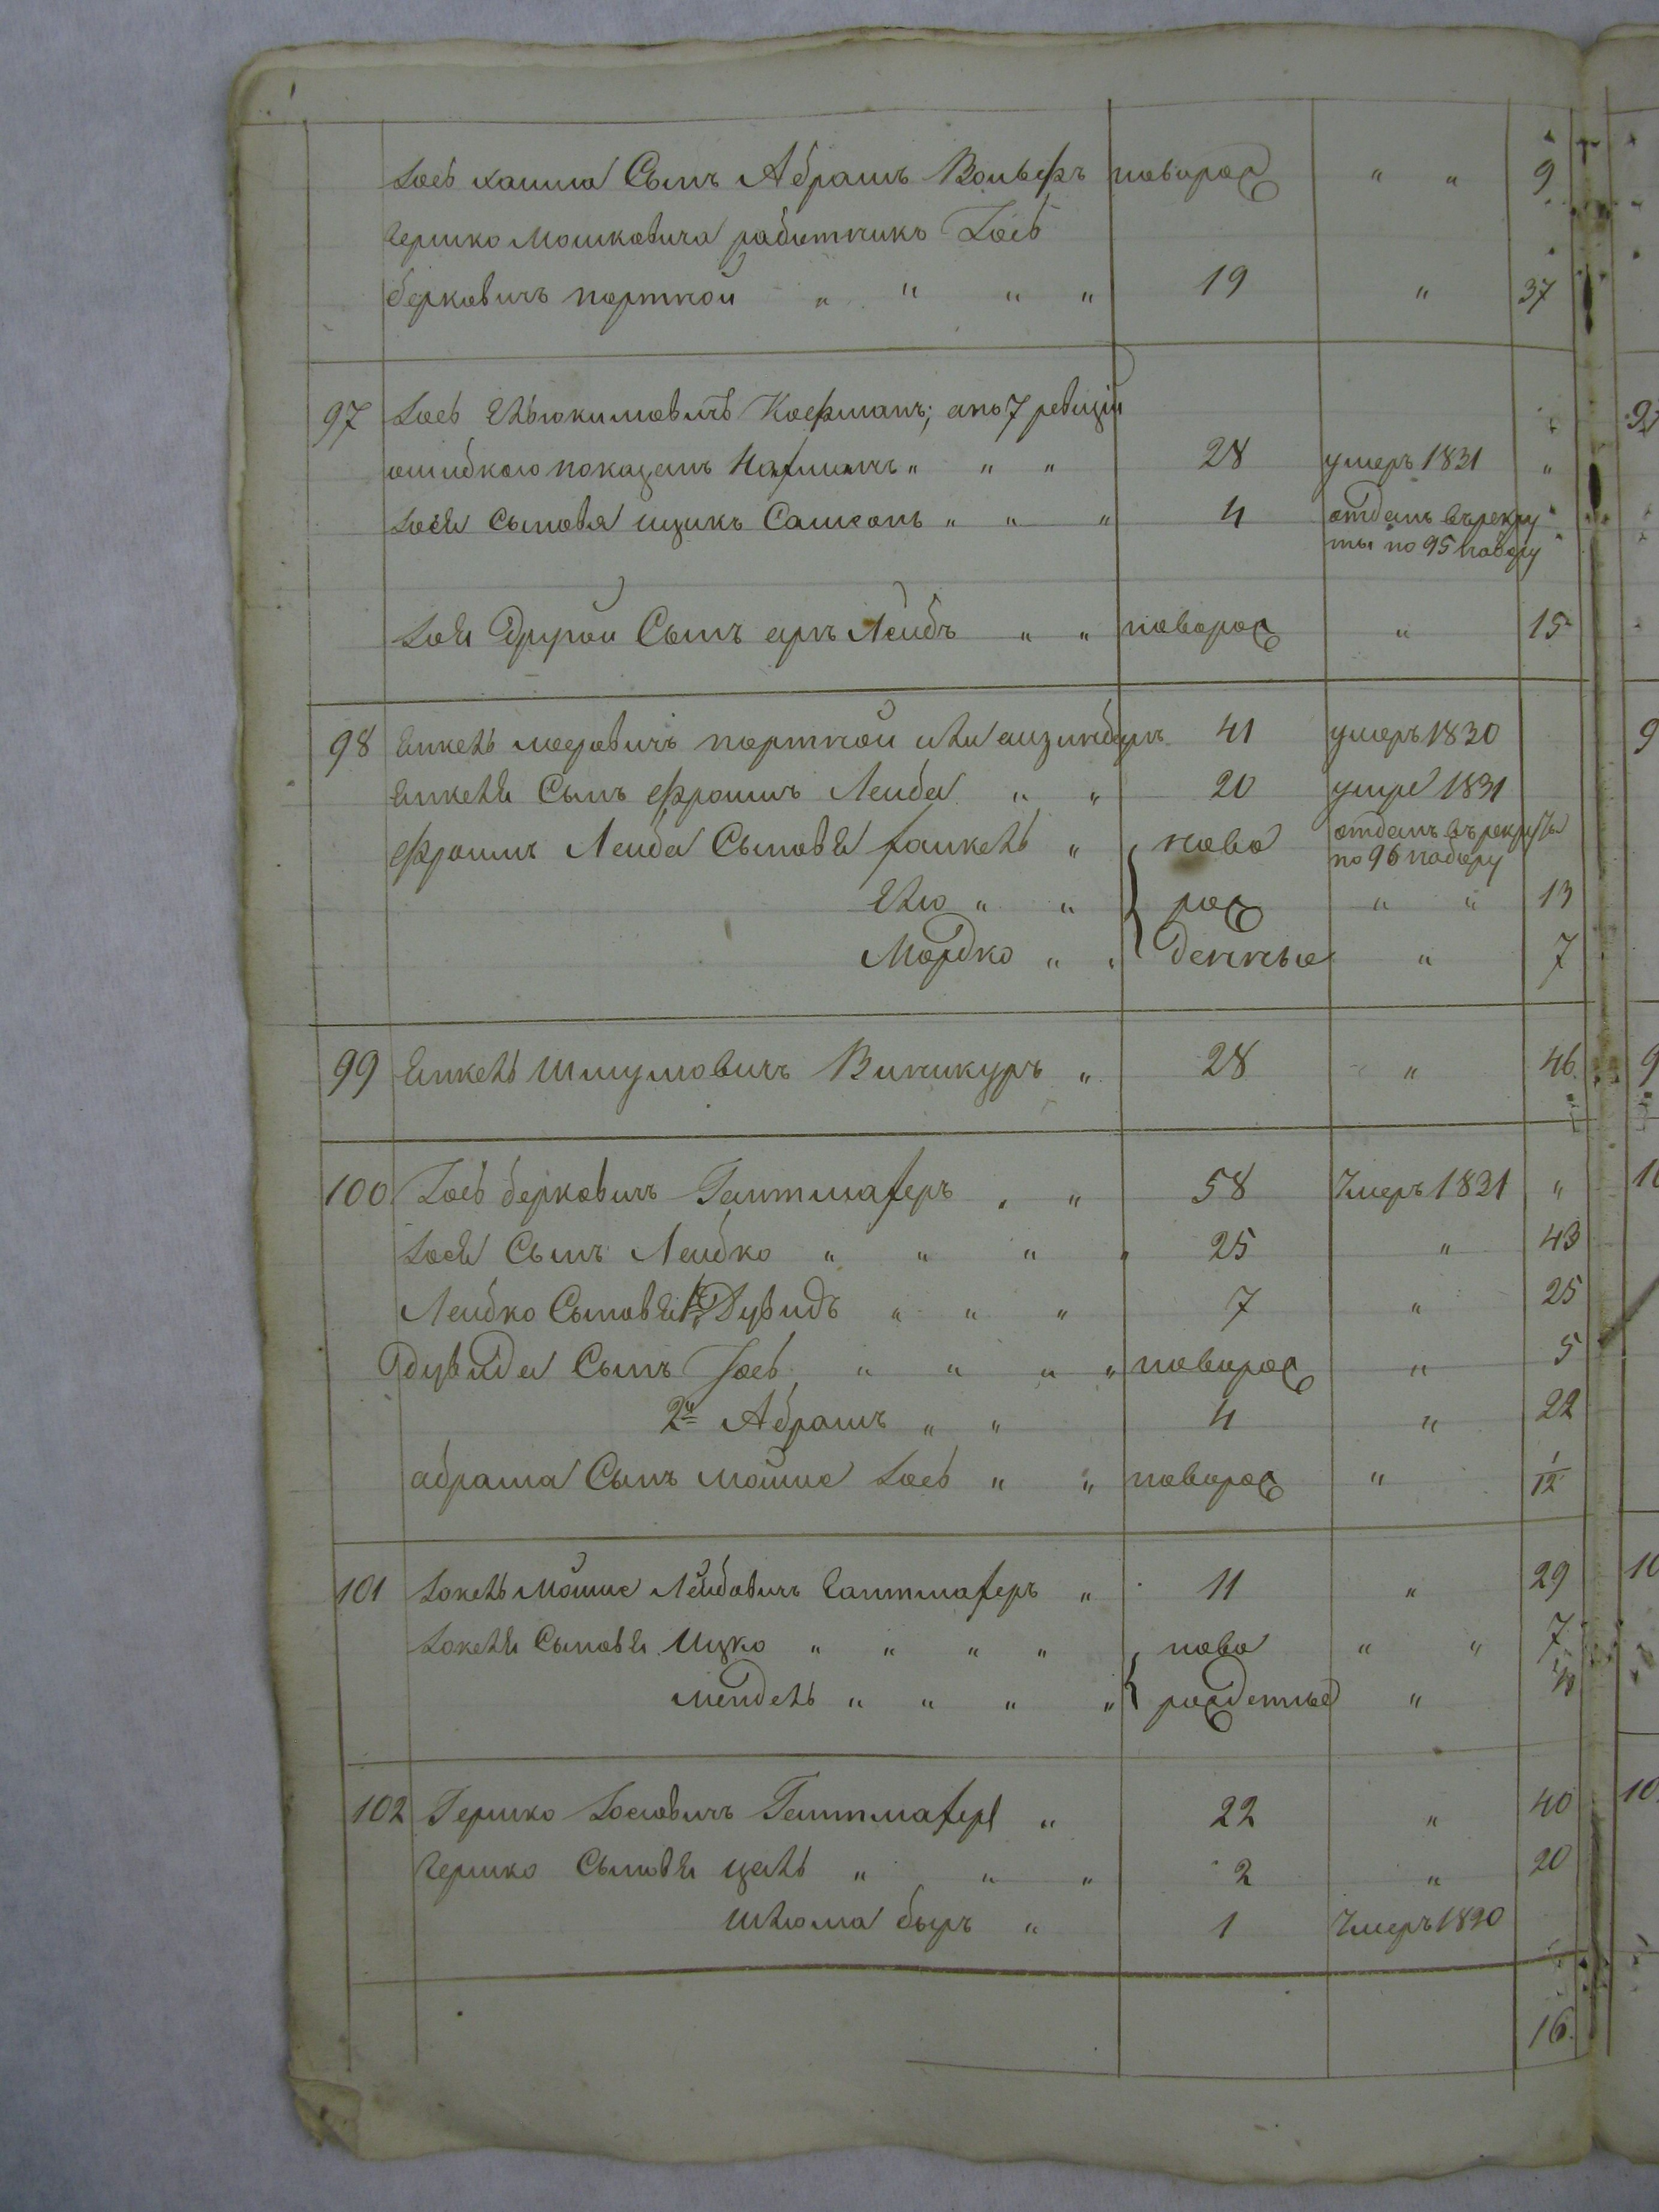 Іосъ хаима Сынъ Абрамъ Вольфъ новорож " " 9
Гершко Мошковича работникъ Іосъ
берковичъ портной " " " " 19 " 37
97 Іосъ Ельюкимовичъ Кофманъ; апо 7 ревизіи
ошибкою показанъ Нафманъ " " " 28 умеръ 1831 "
Іося Сыновья ицикъ Самсонъ " " " 4 отданъ върекру
ты по 95 набору
Іося Другой Сынъ арнъ Лейбъ " " новорож " 15
98 Янкель мееровичъ портной или 41 умеръ 1830
Янкеля Сынъ ефроимъ Лейба " " 20 умре 1831
ефроимъ Лейба Сыновья фанкель " ново отданъ върекруты
по 96 набору
Елю " " рож " " 13
Мордко " " денные " 7
99 Янкель Шмулиовичъ Виникуръ " 28 " 46
100 Іосъ берковичъ Гантмахеръ " " 58 Умеръ 1821 "
Іося Сынъ Лейбко " " " " 25 " 43
Лейбко Сыновья 1й Дувидъ " " " 7 " 25
Дувида Сынъ Іосъ " " " " новорож " 5
2й Абрамъ " " 4 " 22
абрама Сынъ мошие Іосъ " " новорож " 1/12
101 Іокель Мошие Лейбовичъ Гантмахеръ " 11 " 29
Іокеля Сыновья Ицко " " " " ново " " 7
мендель " " " " рожденные "
102 Гершко Іосиовичъ Гантмахеръ " 22 " 40
Гершко Сыновья цель " " " 2 " 20
Шлюма беръ " 1 Умеръ 1820
16.